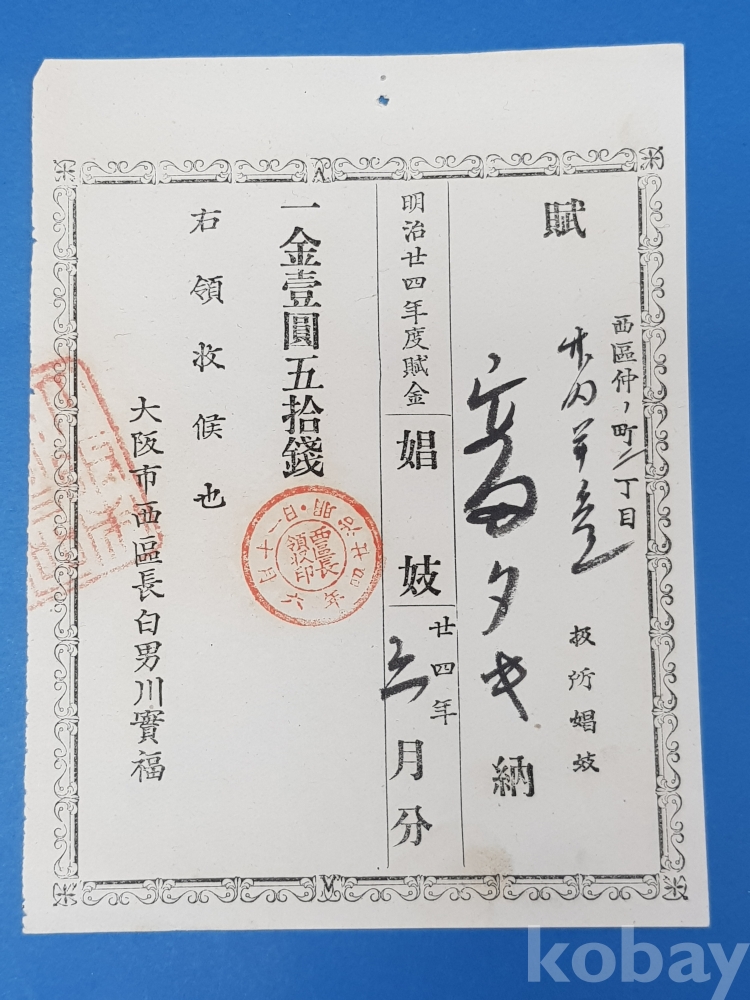 賦
西區仲ノ町二丁目
扱所娼妓
タキ
納
明治廿四年度賦金
娼妓
廿四年
月分
一金壹圓五拾錢
明治廿四年六月十一日
西區長
領收印
右領收候也
大阪市西區長白男川實福
kobay